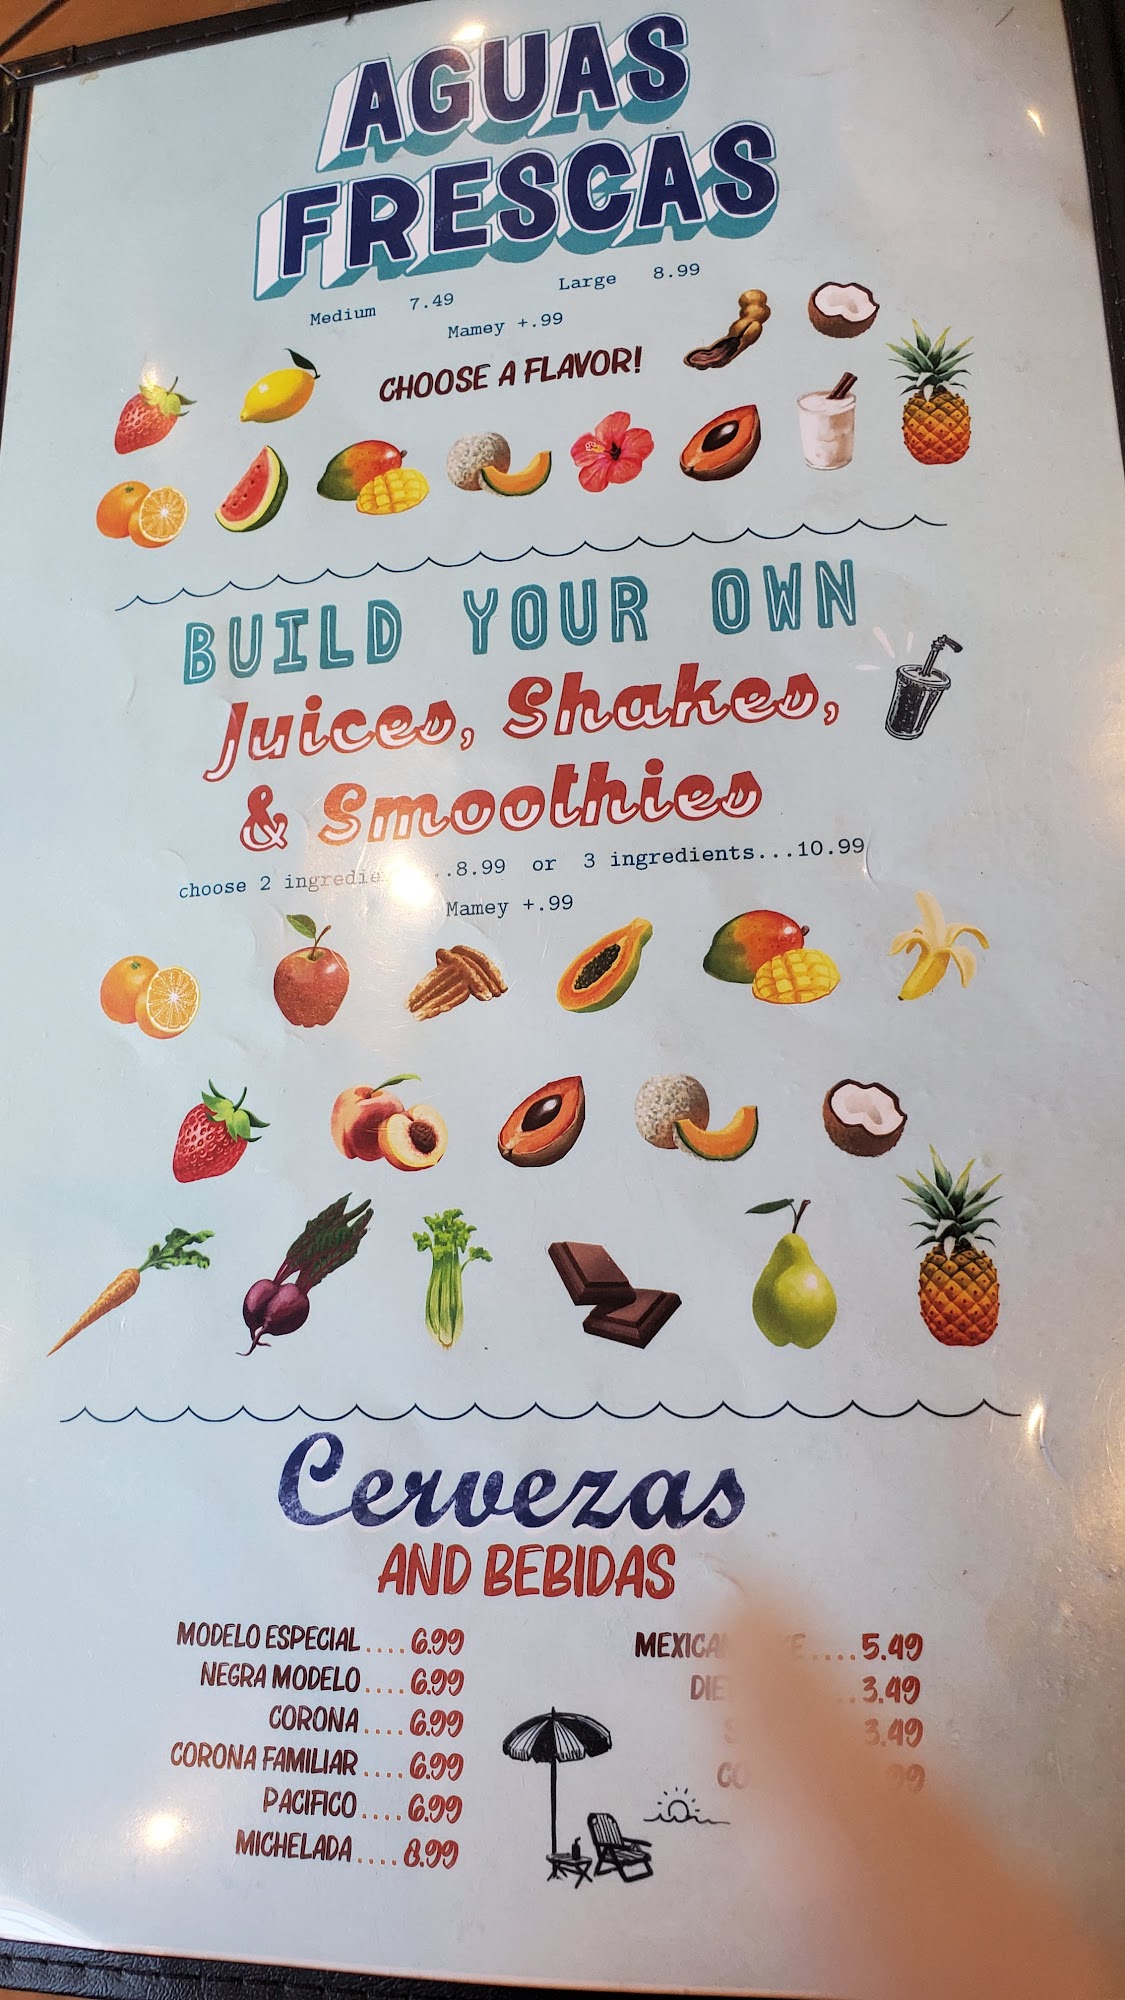 AGUAS
FRESCAS
Medium 7.49 Large 8.99
Mamey +.99
CHOOSE A FLAVOR!
BUILD YOUR OWN
Juices, Shakes,
& Smoothies
choose 2 ...8.99 or 3 ingredients...10.99
Mamey +.99
Cervezas
AND BEBIDAS
MODELO ESPECIAL....6.99
NEGRA MODELO....6.99
CORONA....6.99
CORONA FAMILIAR....6.99
PACIFICO....6.99
MICHELADA....8.99
....5.49
..3.49
3.49